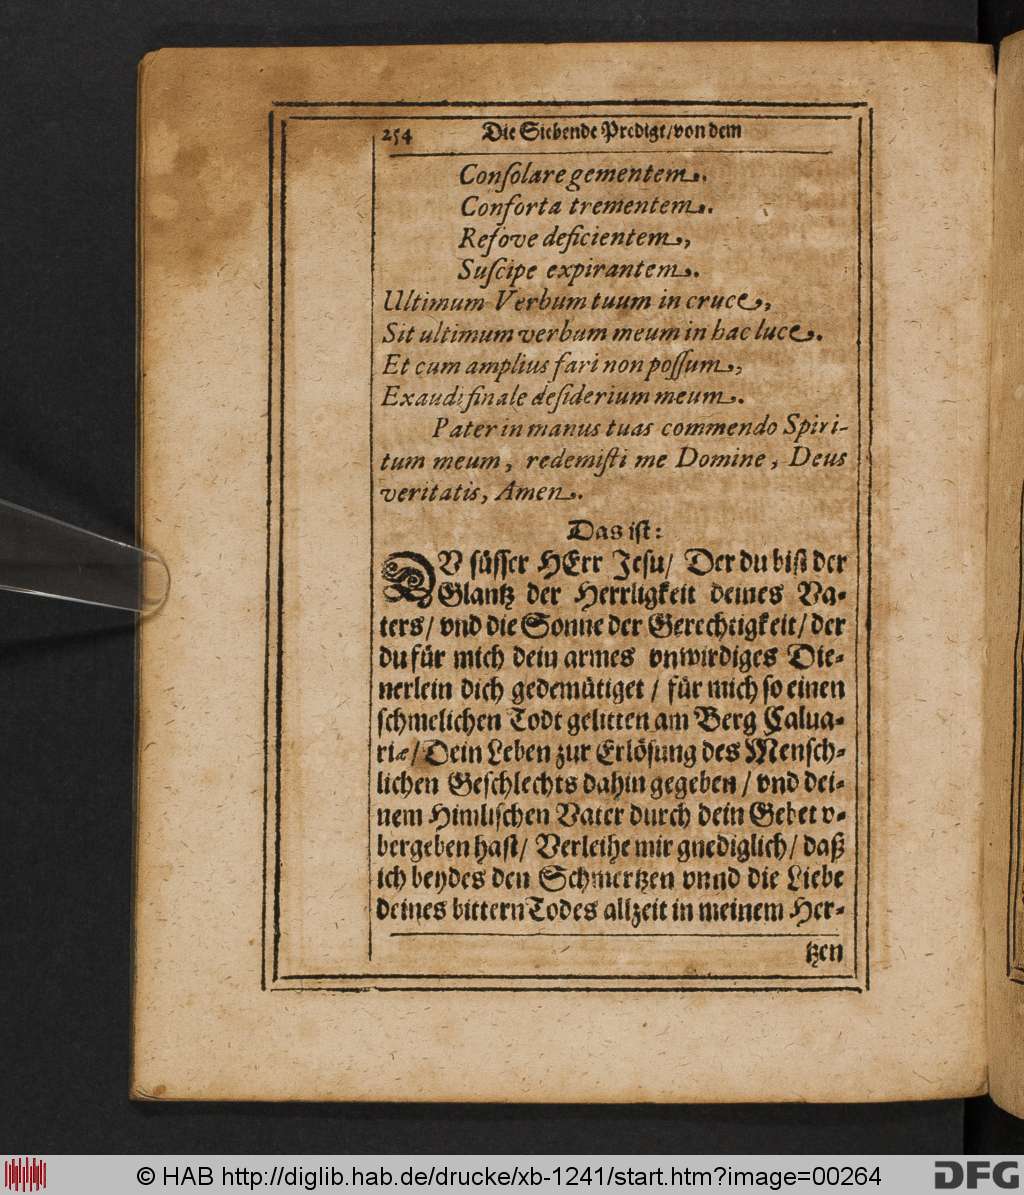 254 Die Siebende Predigt/ von dem
Conſolare gementem.
Conforta trementem.
Refove deficientem,
Suſcipe expirantem.
Ultimum Verbum tuum in cruce,
Sit ultimum verbum meum in hac luce.
Et cum amplius fari non poſſum,
Exaudi finale deſiderium meum.
Pater in manus tuas commendo Spiri-
tum meum, redemiſti me Domine, Deus
veritatis, Amen.
Das iſt:
DV ſüſſer HErr Jeſu/ Der du biſt der
Glantz der Herrligkeit deines Va-
ters/ vnd die Sonne der Gerechtigkeit/ der
du für mich dein armes vnwirdiges Die-
nerlein dich gedemütiget / für mich ſo einen
ſchmelichen Todt gelitten am Berg Calua-
riæ/ Dein Leben zur Erlöſung des Menſch-
lichen Geſchlechts dahin gegeben / vnd dei-
nem Himliſchen Vater durch dein Gebet v-
bergeben haſt/ Verleihe mir gnediglich/ daß
ich beydes den Schmertzen vnnd die Liebe
deines bittern Todes allzeit in meinem Her-
tzen
© HAB http://diglib.hab.de/drucke/xb-1241/start.htm?image=00264
DFG